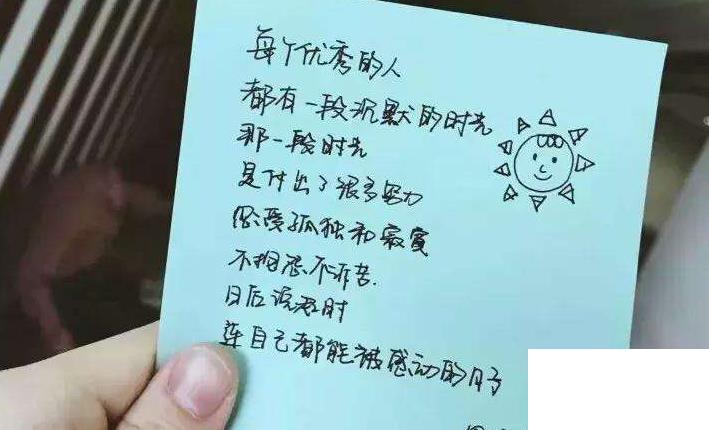 每个优秀的人
都有一段沉默的时光
那一段时光
是付出了很多努力
忍受孤独和寂寞
不抱怨不诉苦.
日后说起时
连自己都能被感动的日子